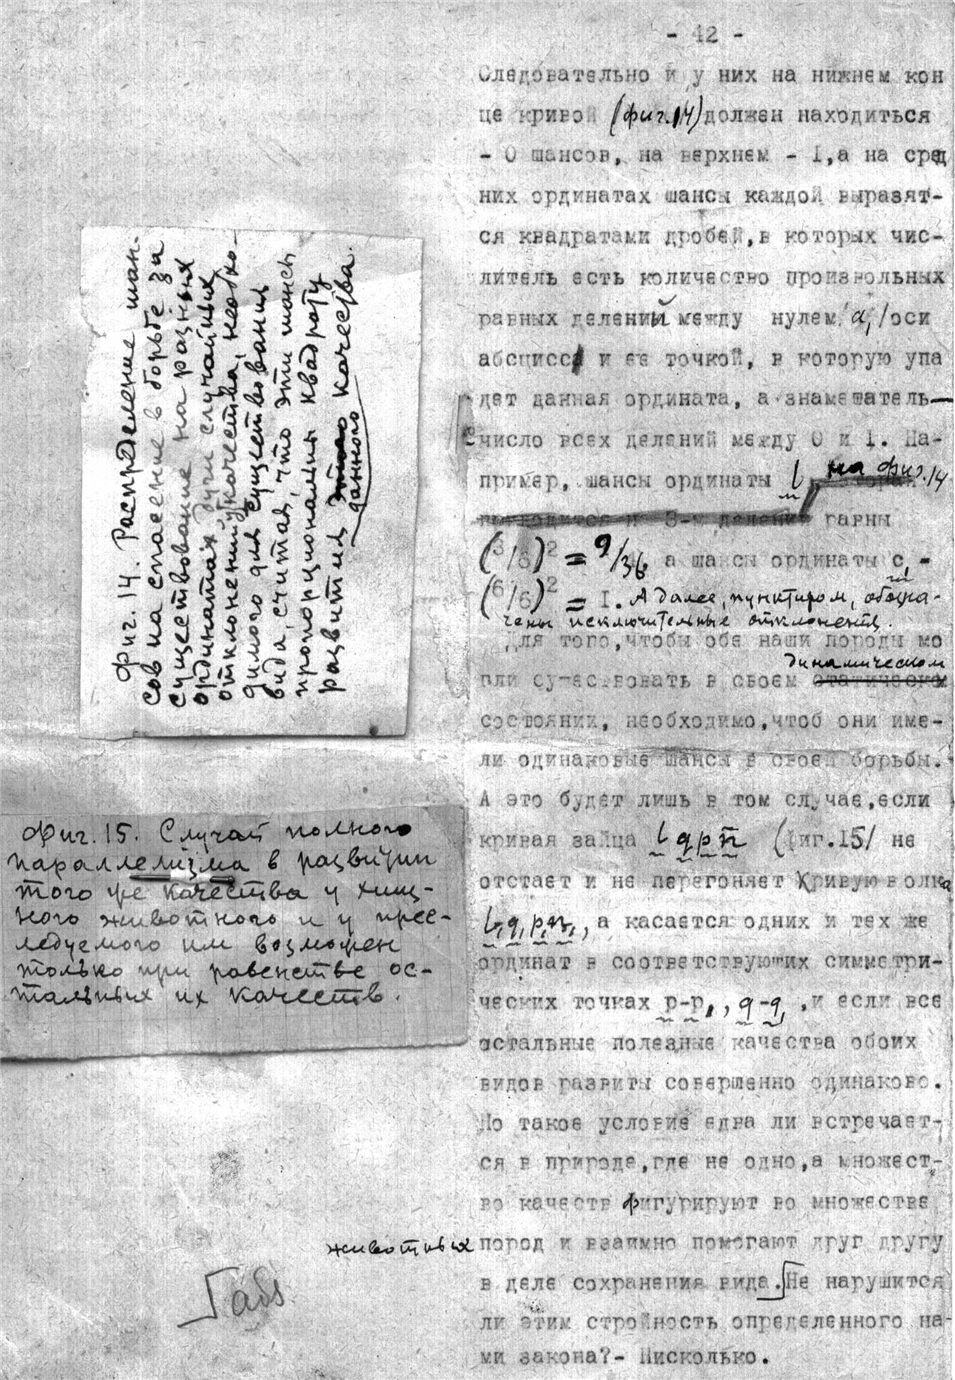 - 42 -
Следовательно и у них на нижнем кон
це кривой (фиг.14) должен находиться
- 0 шансов, на верхнем - I, а на сред
них ординатах шансы каждой выразят-
ся квадратами дробей, в которых чис-
литель есть количество произвольных
равных делений между нулем /a,/оси
абсцисс и ее точкой, в которую упа
дет данная ордината, а знаменатель—
число всех делений между 0 и I. На-
пример, шансы ординаты b на фиг.14
равны
(3/6)² = 9/36, а шансы ординаты c, -
(6/6)² = I. А далее, пунктиром, обозна-
чены исключительные отклонения.
Для того, чтобы обе наши породы мо
гли существовать в своем динамическом
состоянии, необходимо, чтоб они име-
ли одинаковые шансы в своей борьбы.
А это будет лишь в том случае, если
кривая зайца b q p n (фиг.15/ не
отстает и не перегоняет кривую волка
b, q, p, n, , а касается одних и тех же
ординат в соответствующих симметри-
ческих точках p-p, , q-q, , и если все
остальные полезные качества обоих
видов развиты совершенно одинаково.
Но такое условие едва ли встречает-
ся в природе, где не одно, а множест-
во качеств фигурируют во множестве
животных пород и взаимно помогают друг другу
в деле сохранения вида. Не нарушится
ли этим стройность определенного на-
ми закона?- Нисколько.
Фиг. 14. Распределение шан-
сов на спасение в борьбе за
существование на разных
ординатах дуги случайных
отклонений качества, необхо-
димого для существования
вида, считая, что эти шансы
пропорциональны квадрату
развития этого качества.
данного
Фиг.15. Случай полного
параллелизма в развитии
того же качества у хищ-
ного животного и у прес-
ледуемого им возможен
только при равенстве ос-
тальных их качеств.
абз